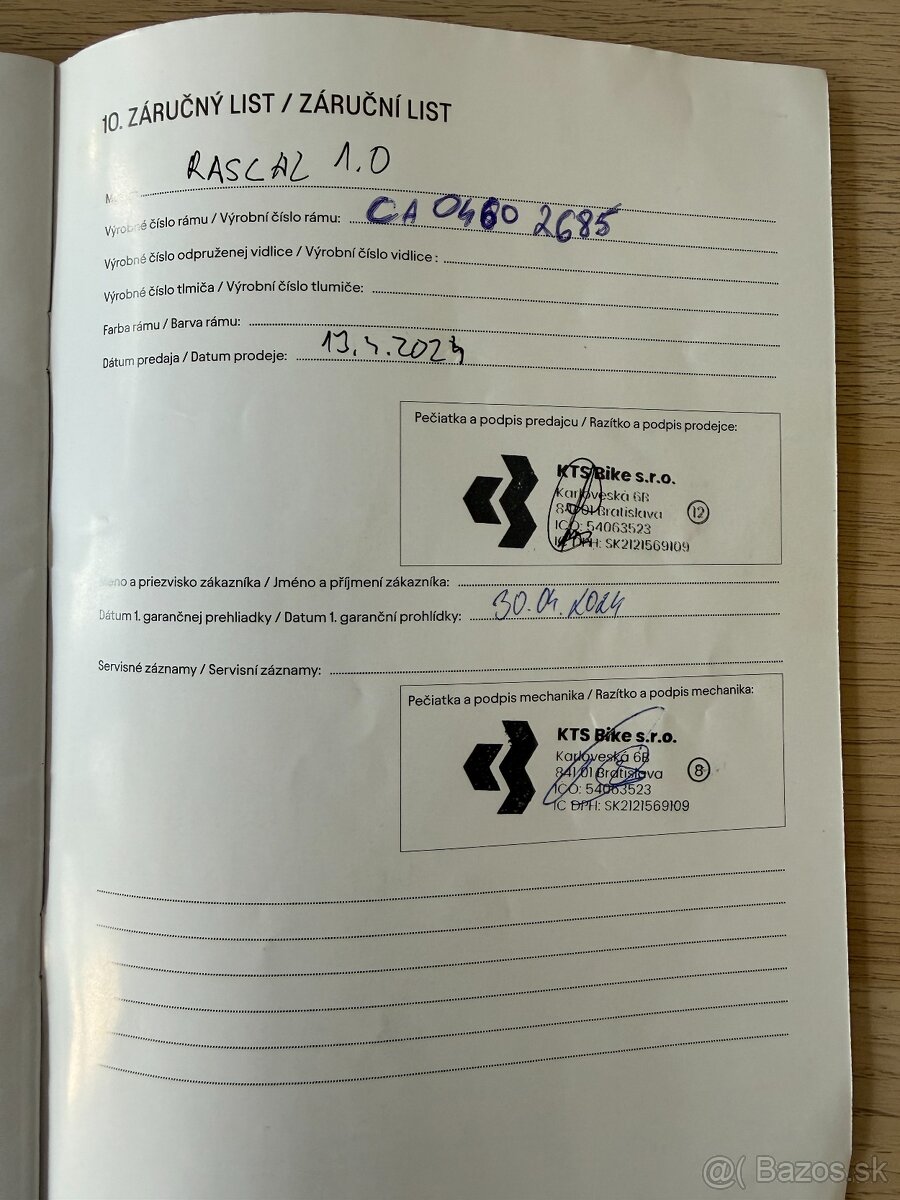 10. ZÁRUČNÝ LIST / ZÁRUČNÍ LIST
RASCAL 1.0
Výrobné číslo rámu / Výrobní číslo rámu: CA 0460 2685
Výrobné číslo odpruženej vidlice / Výrobní číslo vidlice :
Výrobné číslo tlmiča / Výrobní číslo tlumiče:
Farba rámu / Barva rámu:
Dátum predaja / Datum prodeje: 13.4.2024
Pečiatka a podpis predajcu / Razítko a podpis prodejce:
KTS Bike s.r.o.
Karloveská 6B
841 01 Bratislava
12
IČO: 54063523
IC DPH: SK2121569109
Meno a priezvisko zákazníka / Jméno a příjmení zákazníka:
Dátum 1. garančnej prehliadky / Datum 1. garanční prohlídky: 30.04.2024
Servisné záznamy / Servisní záznamy:
Pečiatka a podpis mechanika / Razítko a podpis mechanika:
KTS Bike s.r.o.
Karloveská 6B
841 01 Bratislava
8
IČO: 54063523
IC DPH: SK2121569109
@( Bazos.sk